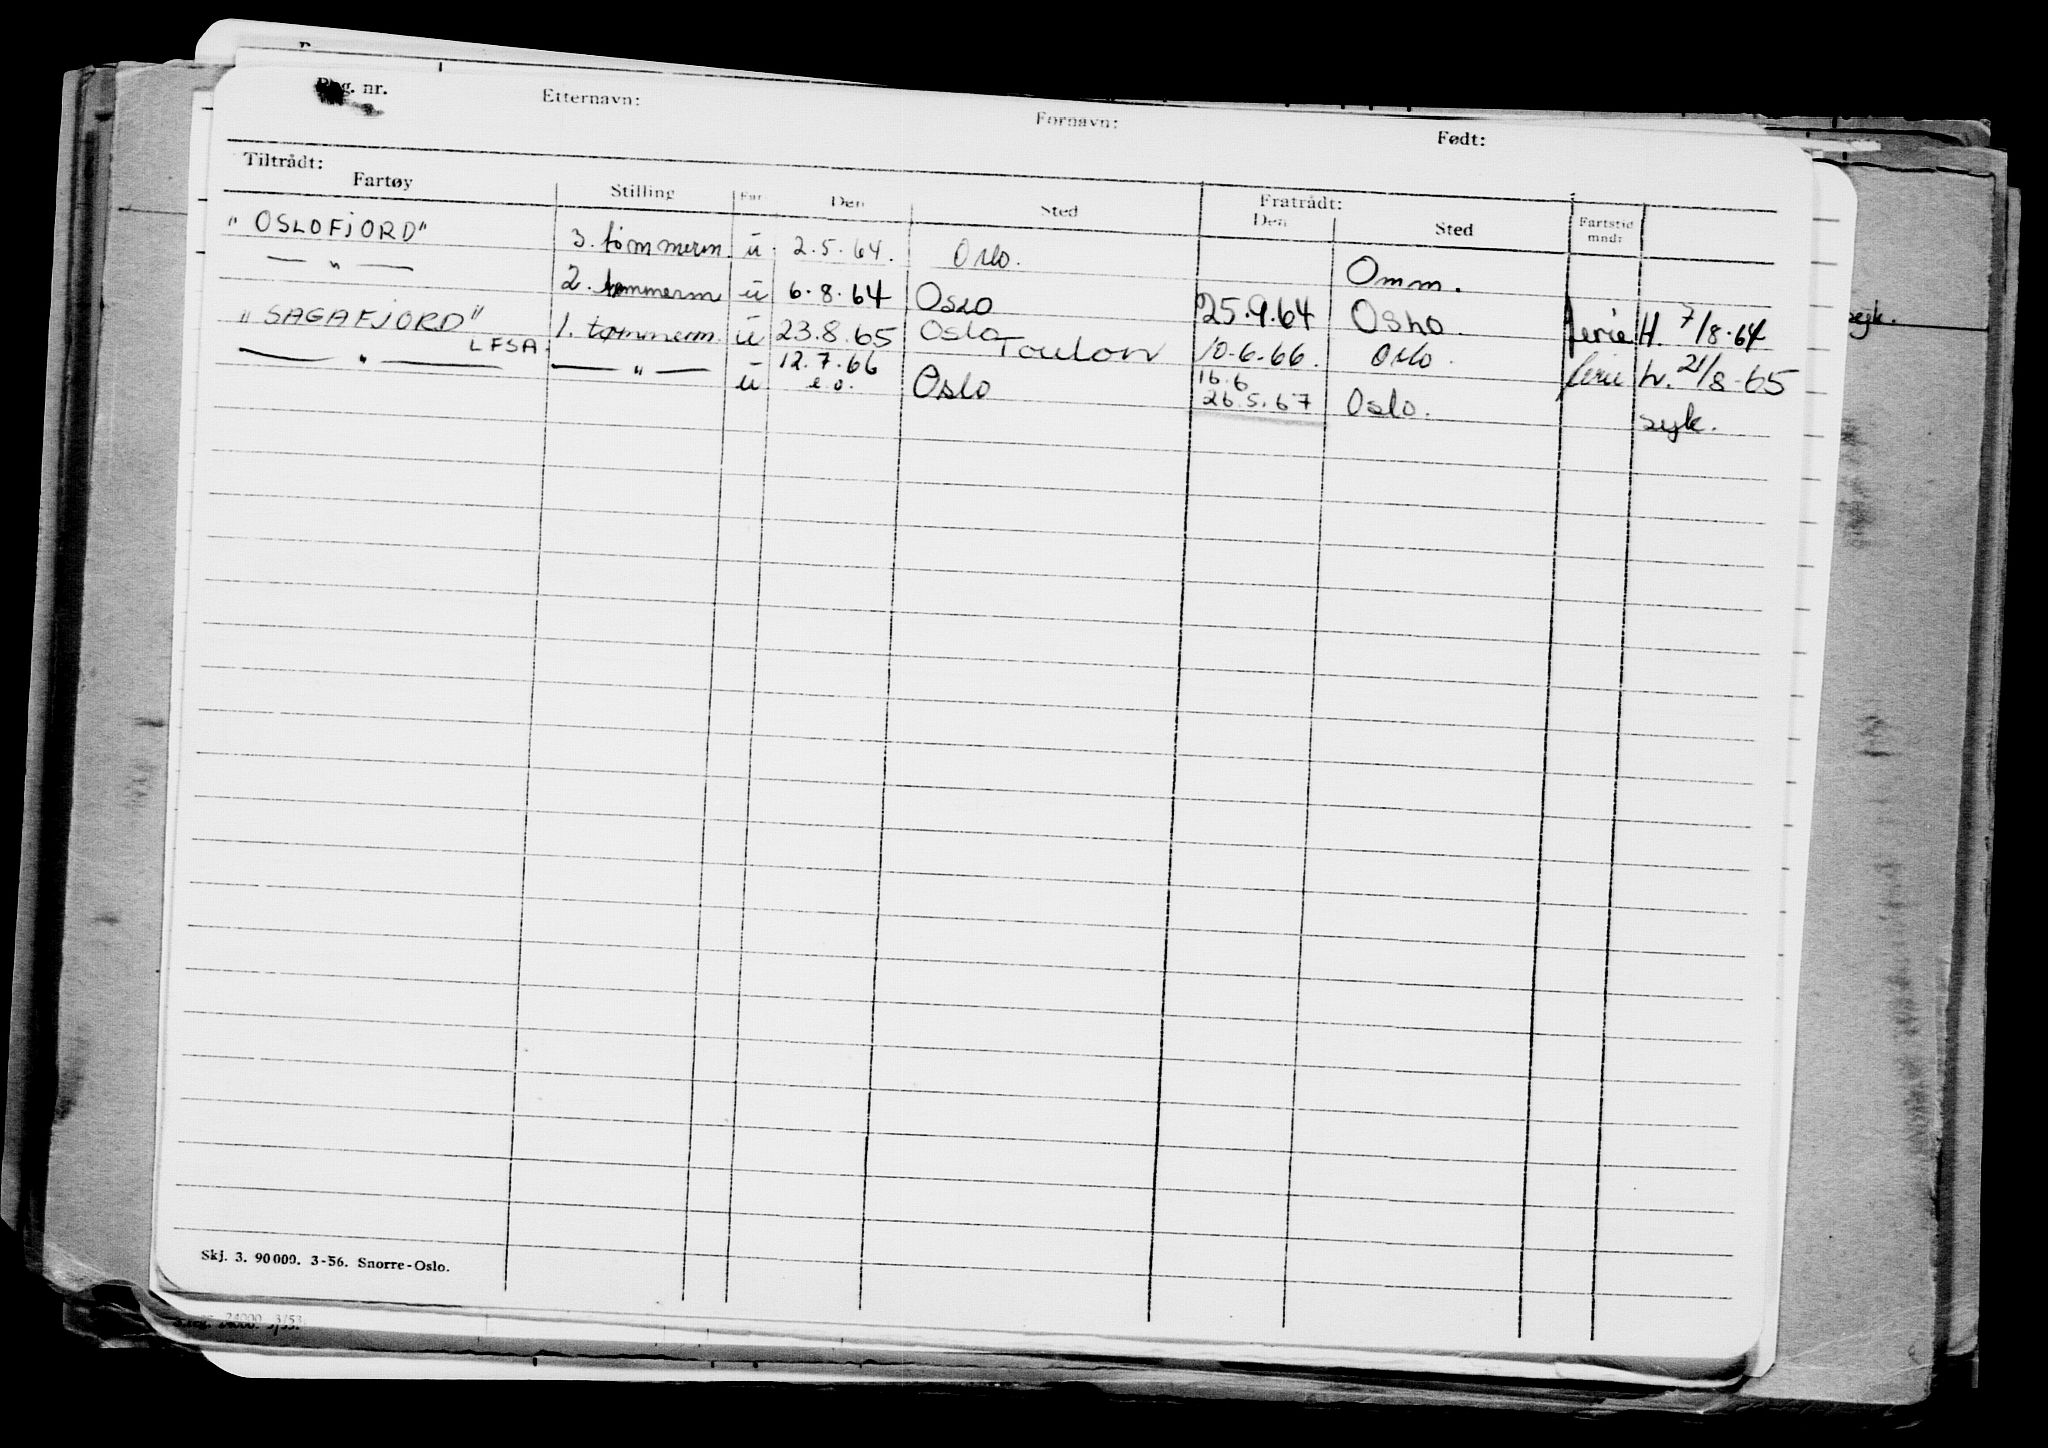 Reg. nr. Etternavn: Fornavn: Født:
Tiltrådt: Fratrådt:
Fartøy Stilling Far Den Sted Den Sted Fartstid mndr
"OSLOFJORD" 3. tømmerm. u. 2.5.64. Oslo. Omm.
— " — 2. tømmerm u 6.8.64 Oslo 25.9.64 Oslo ferie H. 7/8.64
"SAGAFJORD" 1. tømmerm. u 23.8.65 Oslo Toulon 10.6.66. Oslo. ferie h. 21/8-65
LFSA.
— " — — " — u 12.7.66 e.o. Oslo 16.6 26.5.67 Oslo. syk.
syk.
Skj. 3. 90000. 3-56. Snorre-Oslo.
24000. 3/53.